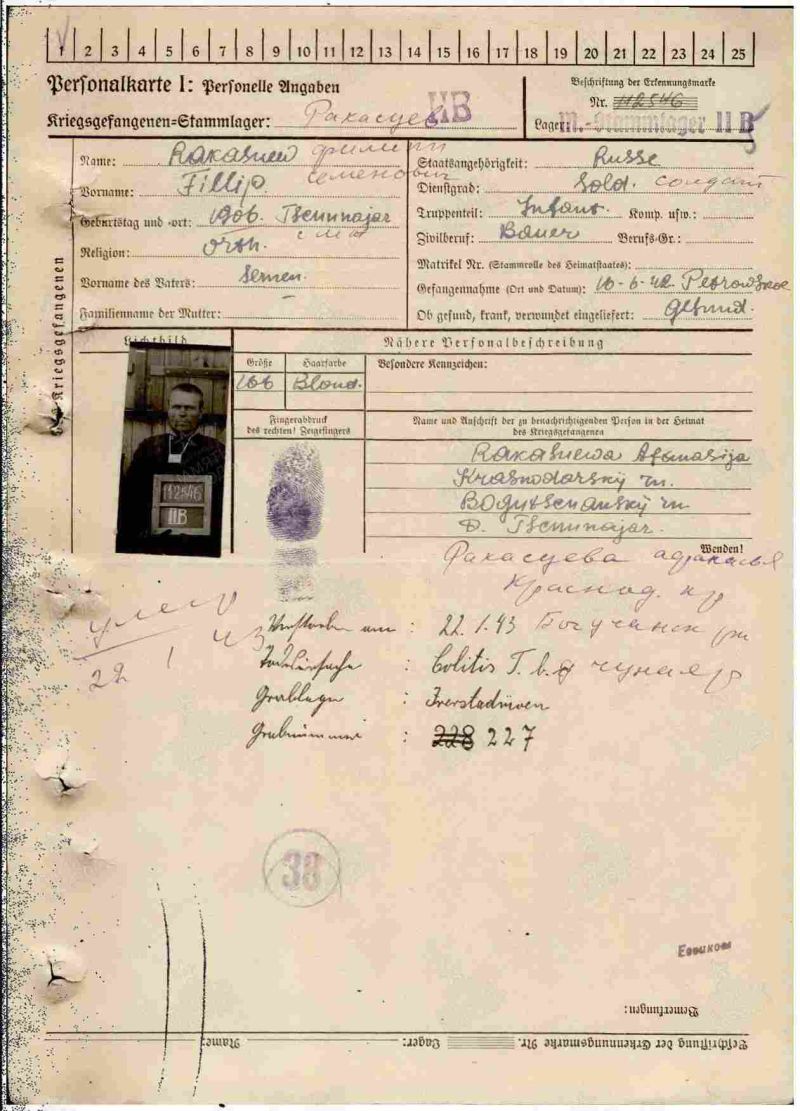 1 2 3 4 5 6 7 8 9 10 11 12 13 14 15 16 17 18 19 20 21 22 23 24 25
Personalkarte I: Personelle Angaben
Beschriftung der Erkennungsmarke
Nr. 112546
Kriegsgefangenen=Stammlager: Ракасуев IIB
Lager: M.-Stammlager II B
Des Kriegsgefangenen
Name: Rakasuew Филипп
Vorname: Fillip. Семенович
Geburtstag und -ort: 1906. Tschunajar
Religion: Orth.
Vorname des Vaters: Semen.
Familienname der Mutter: —
Staatsangehörigkeit: Russe
Dienstgrad: Sold. солдат
Truppenteil: Infant. Komp. usw.:
Zivilberuf: Bauer Berufs-Gr.:
Matrikel Nr. (Stammrolle des Heimatstaates):
Gefangennahme (Ort und Datum): 16-6-42 Petrowskoe
Ob gesund, krank, verwundet eingeliefert: Gesund.
Lichtbild
Nähere Personalbeschreibung
Größe Haarfarbe Besondere Kennzeichen:
166 Blond.
Fingerabdruck
des rechten! Zeigefingers
112546
IIB
Name und Anschrift der zu benachrichtigenden Person in der Heimat
des Kriegsgefangenen
Rakasuewa Afanasija
Krasnodarský
Bogutschanský
D. Tschunajar.
Wenden!
Ракасуева Афанасья
Краснод. кр
умер
22 1 43
Verstorben am : 22.1.43 Богучанск рн
Todesursache : Colitis T. b. д чунаяр
Grablage :
Grabnummer : 228 227
38
Bemerkungen:
Beschriftung der Erkennungsmarke Nr. Lager: Name: